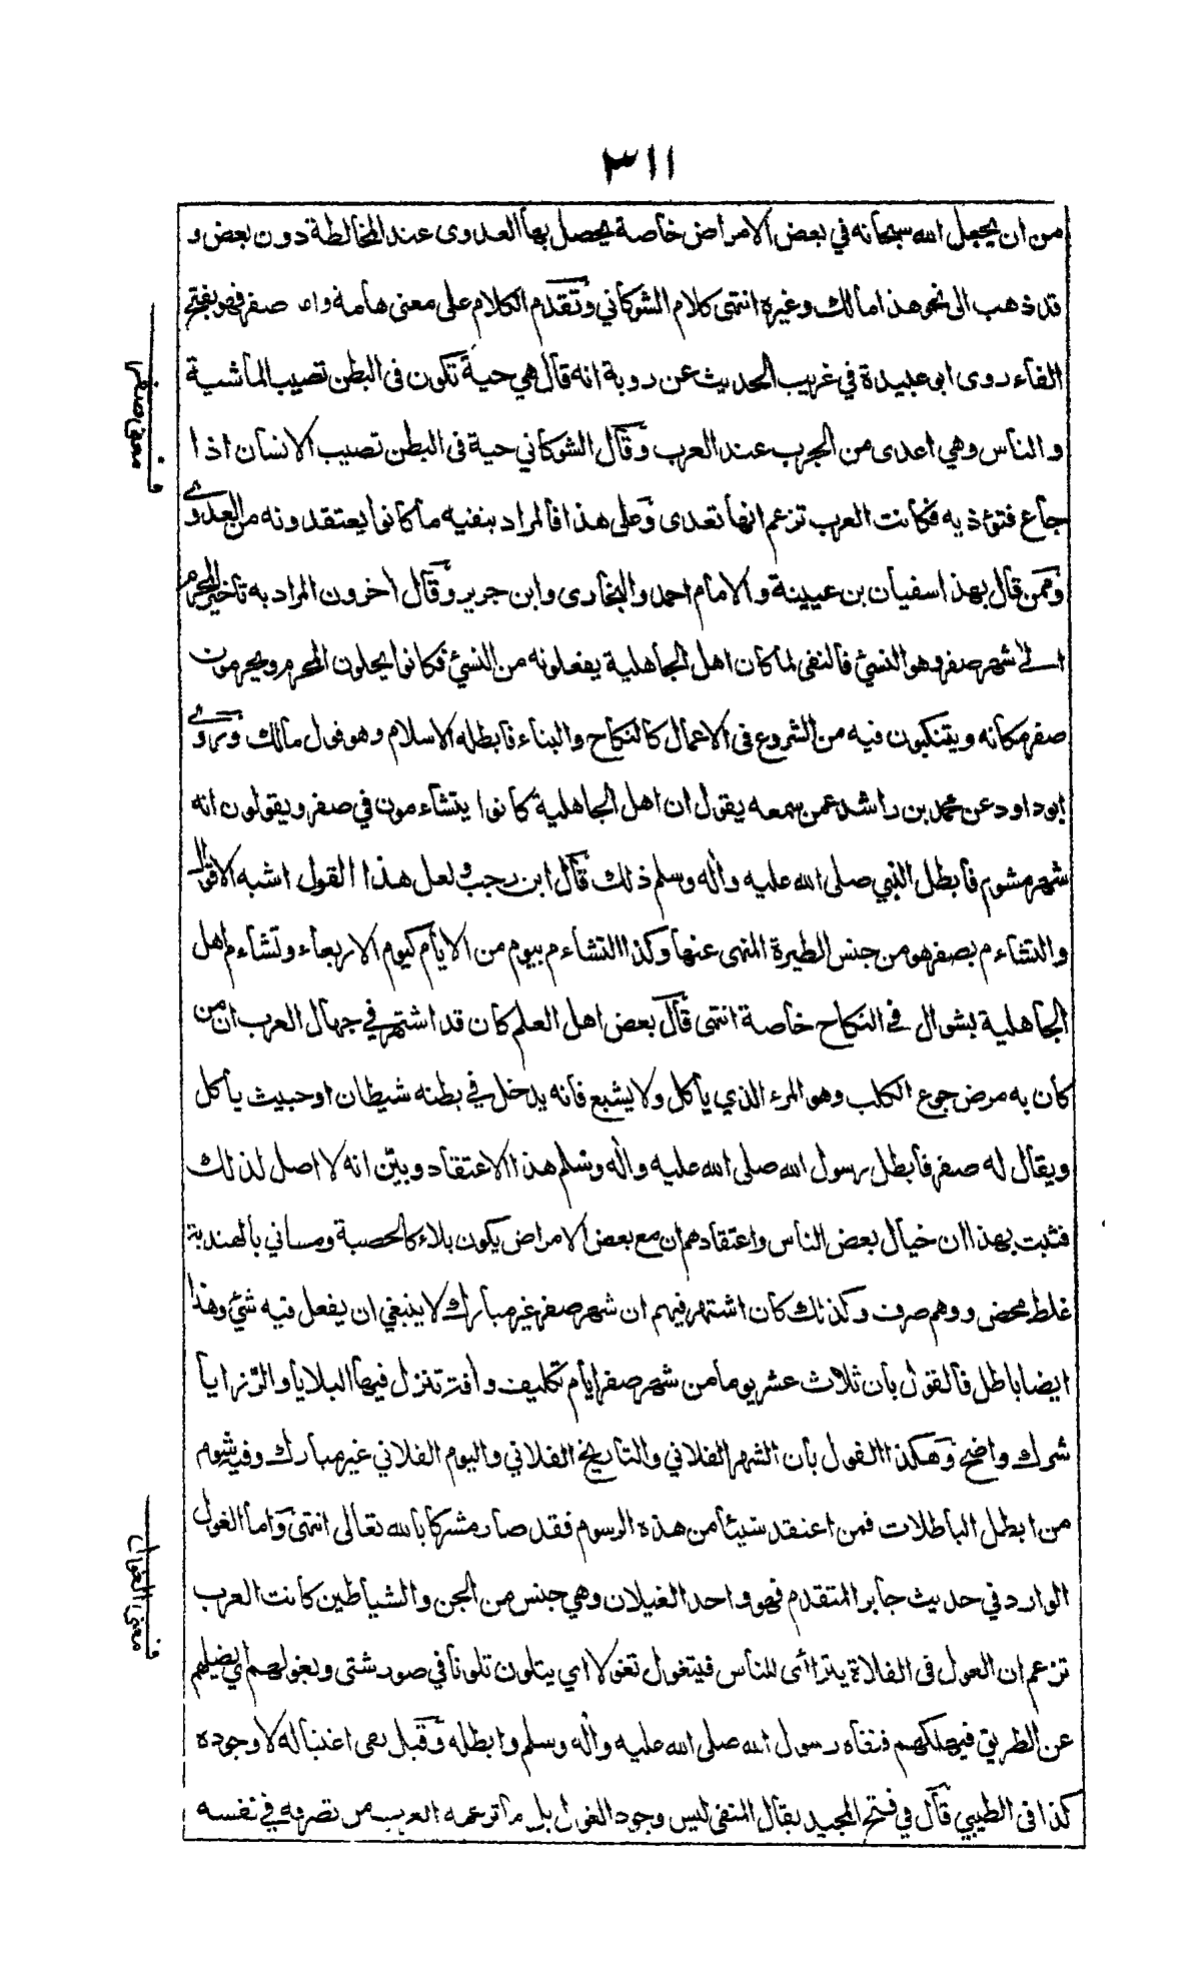 ٣١١
من ان يجعل الله سبحانه في بعض الامراض خاصة يحصل بها العدوى عند المخالطة دون بعض و
قد ذهب الى نحو هذا مالك وغيره انتهى كلام الشوكاني وتقدم الكلام على معنى هامة واما صفر فهو بفتح
الفاء روى ابو عبيدة في غريب الحديث عن روبة انه قال هي حية تكون فى البطن تصيب الماشية
والناس وهي اعدى من الجرب عند العرب وقال الشوكاني حية فى البطن تصيب الانسان اذا
جاع فتؤذيه فكانت العرب تزعم انها تعدى وعلى هذا فالمراد بنفيه ما كانوا يعتقدونه من العدوى
وممن قال بهذا سفيان بن عيينة والامام احمد والبخارى وابن جرير وقال اخرون المراد به تأخير المحرم
الى شهر صفر وهو النسئ فالنفى لما كان اهل الجاهلية يفعلونه من النسئ فكانوا يحلون المحرم ويحرمون
صفر مكانه ويتنكبون فيه من الشروع فى الاعمال كالنكاح والبناء فابطله الاسلام وهو قول مالك وروى
ابو داود عن محمد بن راشد عمن سمعه يقول ان اهل الجاهلية كانوا يتشاءمون في صفر ويقولون انه
شهر مشوم فابطل النبي صلى الله عليه واله وسلم ذلك قال ابن رجب ولعل هذا القول اشبه الاقوال
والتشاءم بصفر هو من جنس الطيرة المنهى عنها وكذا التشاءم بيوم من الايام كيوم الاربعاء وتشاءم اهل
الجاهلية بشوال في النكاح خاصة انتهى قال بعض اهل العلم كان قد اشتهر في جهال العرب ان من
كان به مرض جوع الكلب وهو المرء الذي ياكل ولا يشبع فانه يدخل في بطنه شيطان او خبيث ياكل
ويقال له صفر فابطل رسول الله صلى الله عليه واله وسلم هذا الاعتقاد وبين انه لا اصل لذلك
فثبت بهذا ان خيال بعض الناس واعتقادهم ان مع بعض الامراض يكون بلاء كالحصبة ومساني بالهندية
غلط محض ووهم صرف وكذلك كان اشتهر فيهم ان شهر صفر غير مبارك لا ينبغي ان يفعل فيه شئ وهذا
ايضا باطل فالقول بان ثلاث عشر يوما من شهر صفر ايام تكليف وافة تنزل فيها البلايا والرزايا
شرك واضح وهكذا القول بان الشهر الفلاني والتاريخ الفلاني واليوم الفلاني غير مبارك وفيه شوم
من ابطل الباطلات فمن اعتقد شيئا من هذه الرسوم فقد صار مشركا بالله تعالى انتهى واما الغول
الوارد في حديث جابر المتقدم فهو واحد الغيلان وهي جنس من الجن والشياطين كانت العرب
تزعم ان الغول فى الفلاة يتراأى للناس فيتغول تغولا اي يتلون تلونا في صور شتى ويغولهم اي يضلهم
عن الطريق فيهلكهم فنفاه رسول الله صلى الله عليه واله وسلم وابطله وقيل نفى اغتياله لا وجوده
كذا فى الطيبي قال في فتح المجيد يقال المنفى ليس وجود الغول بل ما تزعمه العرب من تصرفه في نفسه
ف معنى صفر
ف معنى الغول